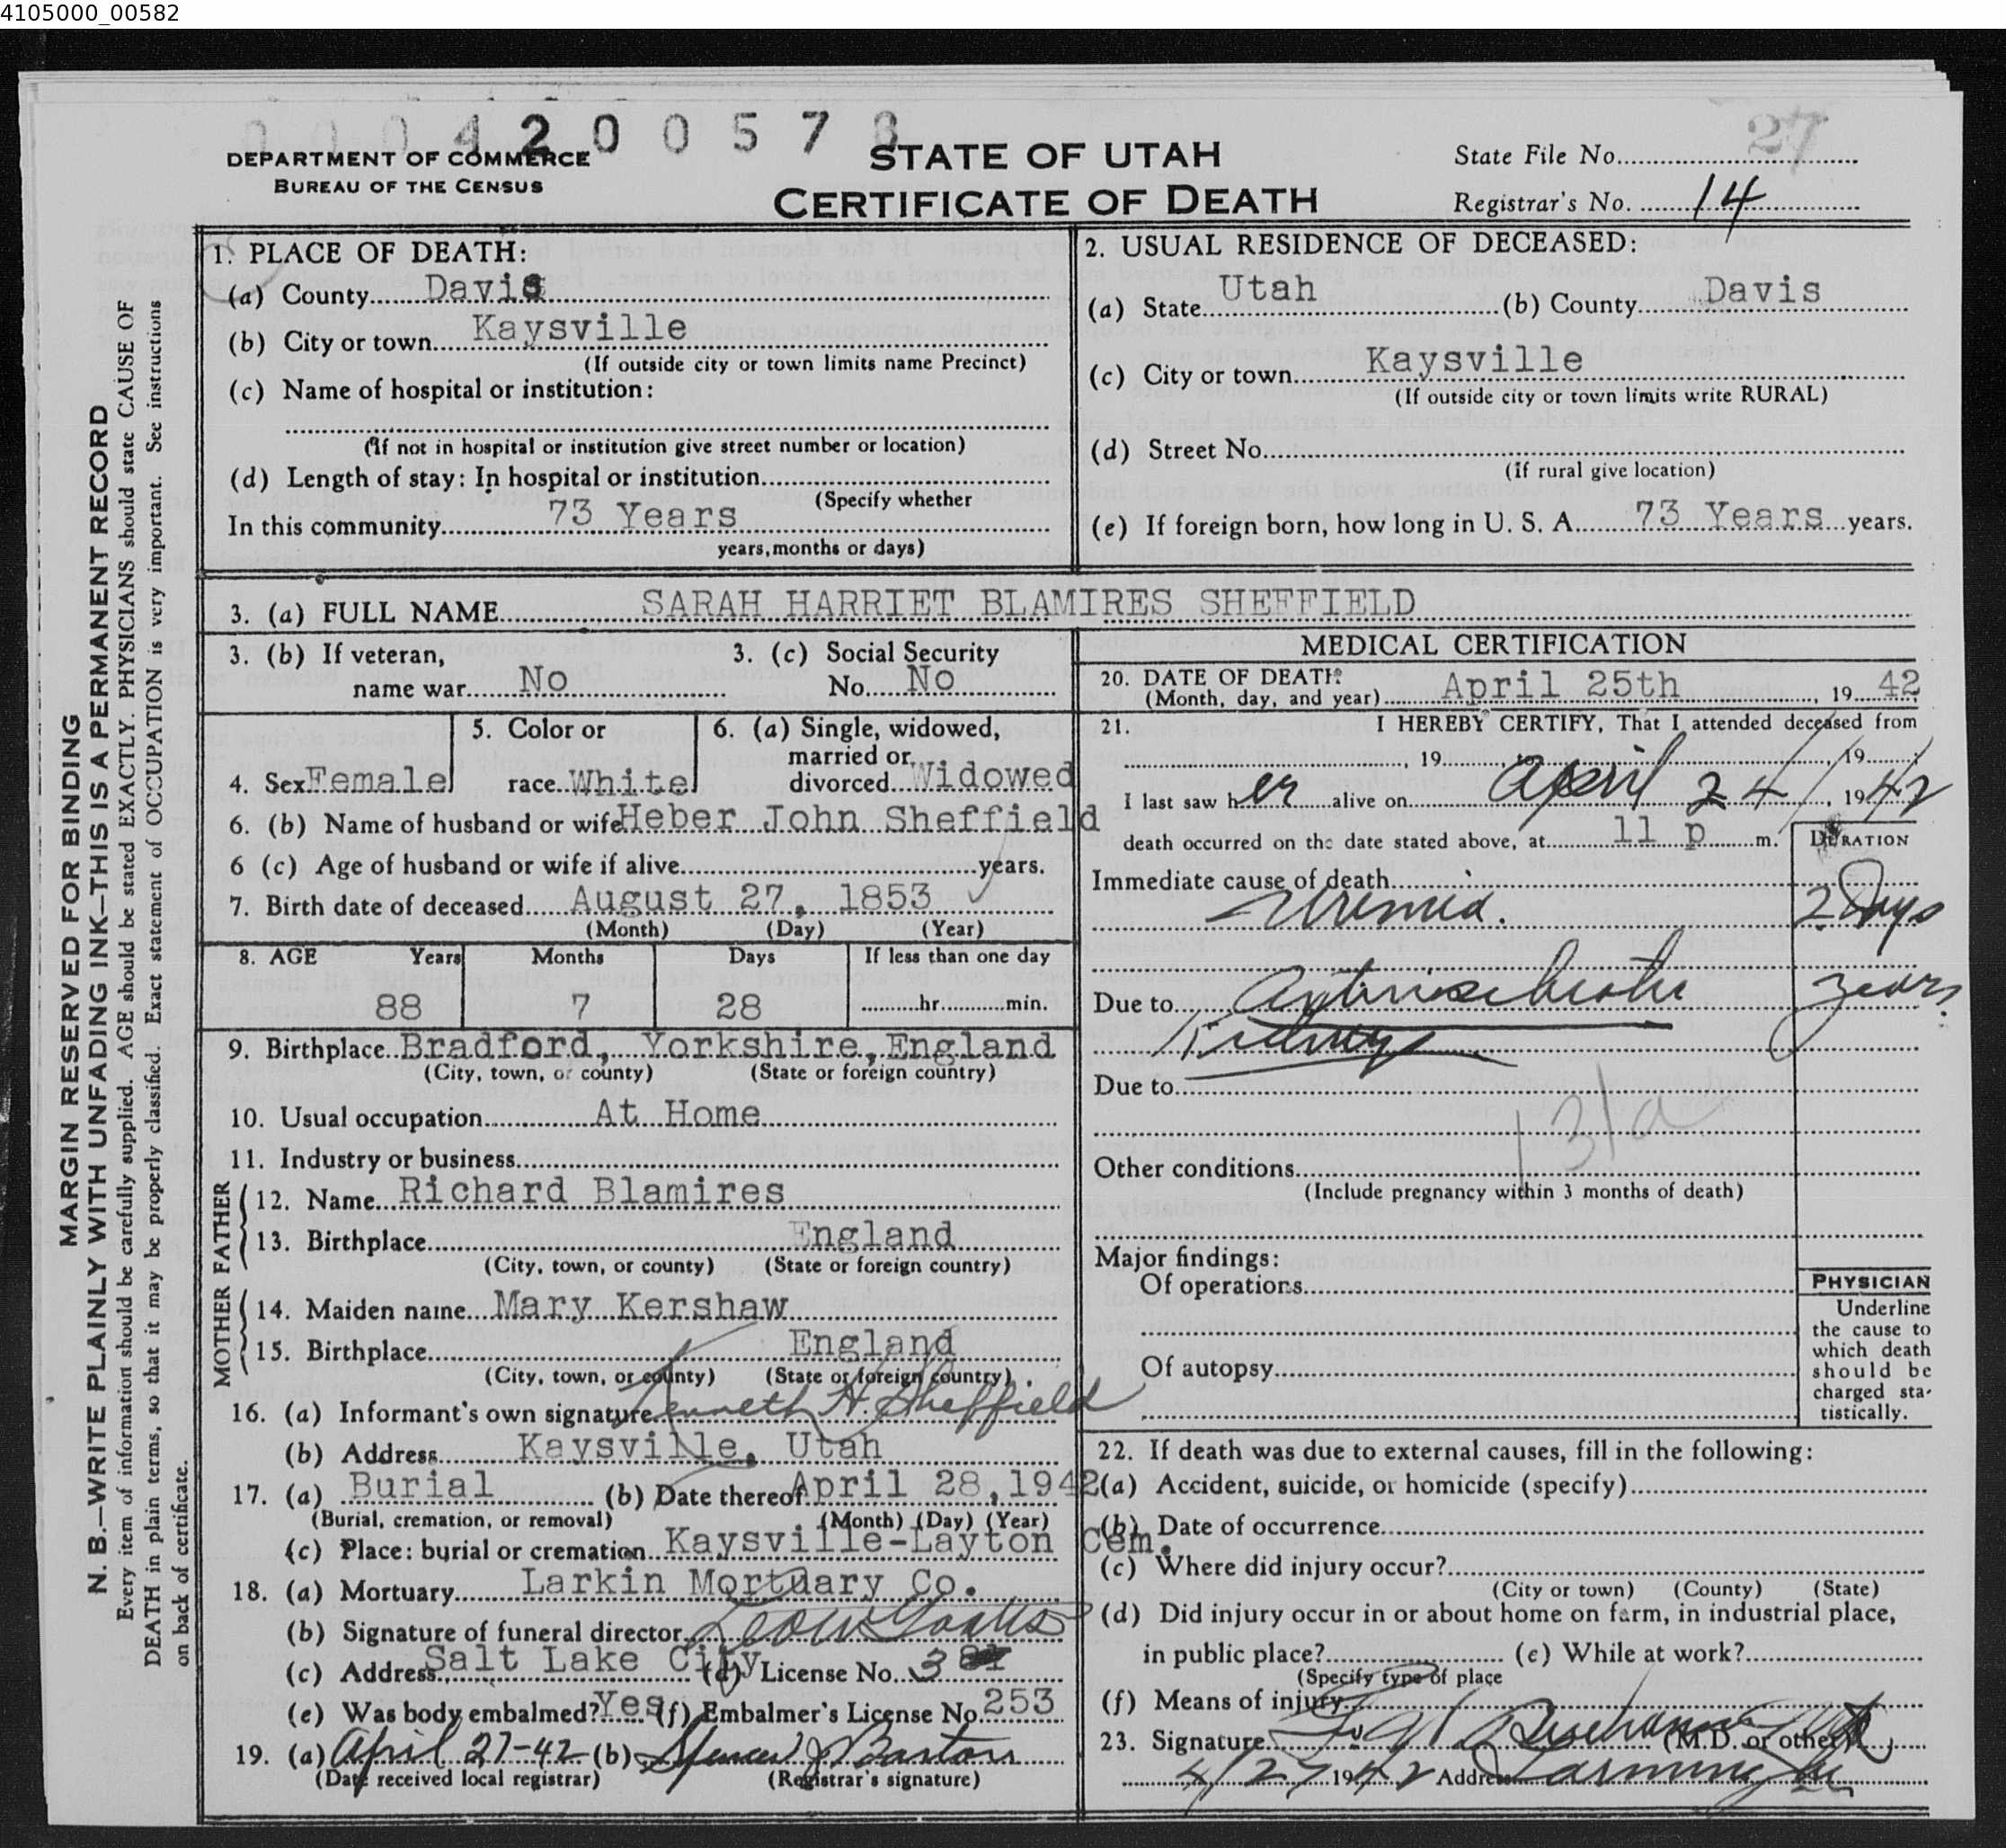 4105000_00582
0 0 0 4 2 0 0 5 7 8
DEPARTMENT OF COMMERCE
BUREAU OF THE CENSUS
STATE OF UTAH
CERTIFICATE OF DEATH
State File No. 27
Registrar's No. 14
MARGIN RESERVED FOR BINDING
N. B.—WRITE PLAINLY WITH UNFADING INK—THIS IS A PERMANENT RECORD
Every item of information should be carefully supplied. AGE should be stated EXACTLY. PHYSICIANS should state CAUSE OF
DEATH in plain terms, so that it may be properly classified. Exact statement of OCCUPATION is very important. See instructions
on back of certificate.
1. PLACE OF DEATH:
(a) County Davis
(b) City or town Kaysville
(If outside city or town limits name Precinct)
(c) Name of hospital or institution:
(If not in hospital or institution give street number or location)
(d) Length of stay: In hospital or institution
(Specify whether
In this community 73 Years
years, months or days)
2. USUAL RESIDENCE OF DECEASED:
(a) State Utah (b) County Davis
(c) City or town Kaysville
(If outside city or town limits write RURAL)
(d) Street No.
(If rural give location)
(e) If foreign born, how long in U. S. A. 73 Years years.
3. (a) FULL NAME SARAH HARRIET BLAMIRES SHEFFIELD
3. (b) If veteran,
name war No
3. (c) Social Security
No. No
4. Sex Female
5. Color or
race White
6. (a) Single, widowed,
married or
divorced Widowed
6. (b) Name of husband or wife Heber John Sheffield
6 (c) Age of husband or wife if alive years.
7. Birth date of deceased August 27, 1853
(Month) (Day) (Year)
8. AGE Years Months Days If less than one day
88 7 28 hr. min.
9. Birthplace Bradford, Yorkshire, England
(City, town, or county) (State or foreign country)
10. Usual occupation At Home
11. Industry or business
FATHER
12. Name Richard Blamires
13. Birthplace England
(City, town, or county) (State or foreign country)
MOTHER
14. Maiden name Mary Kershaw
15. Birthplace England
(City, town, or county) (State or foreign country)
16. (a) Informant's own signature Kenneth H. Sheffield
(b) Address Kaysville, Utah
17. (a) Burial (b) Date thereof April 28, 1942
(Burial, cremation, or removal) (Month) (Day) (Year)
(c) Place: burial or cremation Kaysville-Layton Cem.
18. (a) Mortuary Larkin Mortuary Co.
(b) Signature of funeral director
(c) Address Salt Lake City (d) License No. 3
(e) Was body embalmed? Yes (f) Embalmer's License No. 253
19. (a) April 27-42 (b) Spencer J Barton
(Date received local registrar) (Registrar's signature)
MEDICAL CERTIFICATION
20. DATE OF DEATH
(Month, day, and year) April 25th, 19 42
21. I HEREBY CERTIFY, That I attended deceased from
, 19 to , 19
I last saw her alive on April 24, 1942
death occurred on the date stated above, at 11 p m.
DURATION
Immediate cause of death
Uremia. 2 Days
Due to
Kidneys
Due to
131a
Other conditions
(Include pregnancy within 3 months of death)
Major findings:
Of operations
Of autopsy
PHYSICIAN
Underline
the cause to
which death
should be
charged sta-
tistically.
22. If death was due to external causes, fill in the following:
(a) Accident, suicide, or homicide (specify)
(b) Date of occurrence
(c) Where did injury occur?
(City or town) (County) (State)
(d) Did injury occur in or about home on farm, in industrial place,
in public place? (e) While at work?
(Specify type of place
(f) Means of injury
23. Signature (M.D. or other)
4/27 1942 Address Farmington